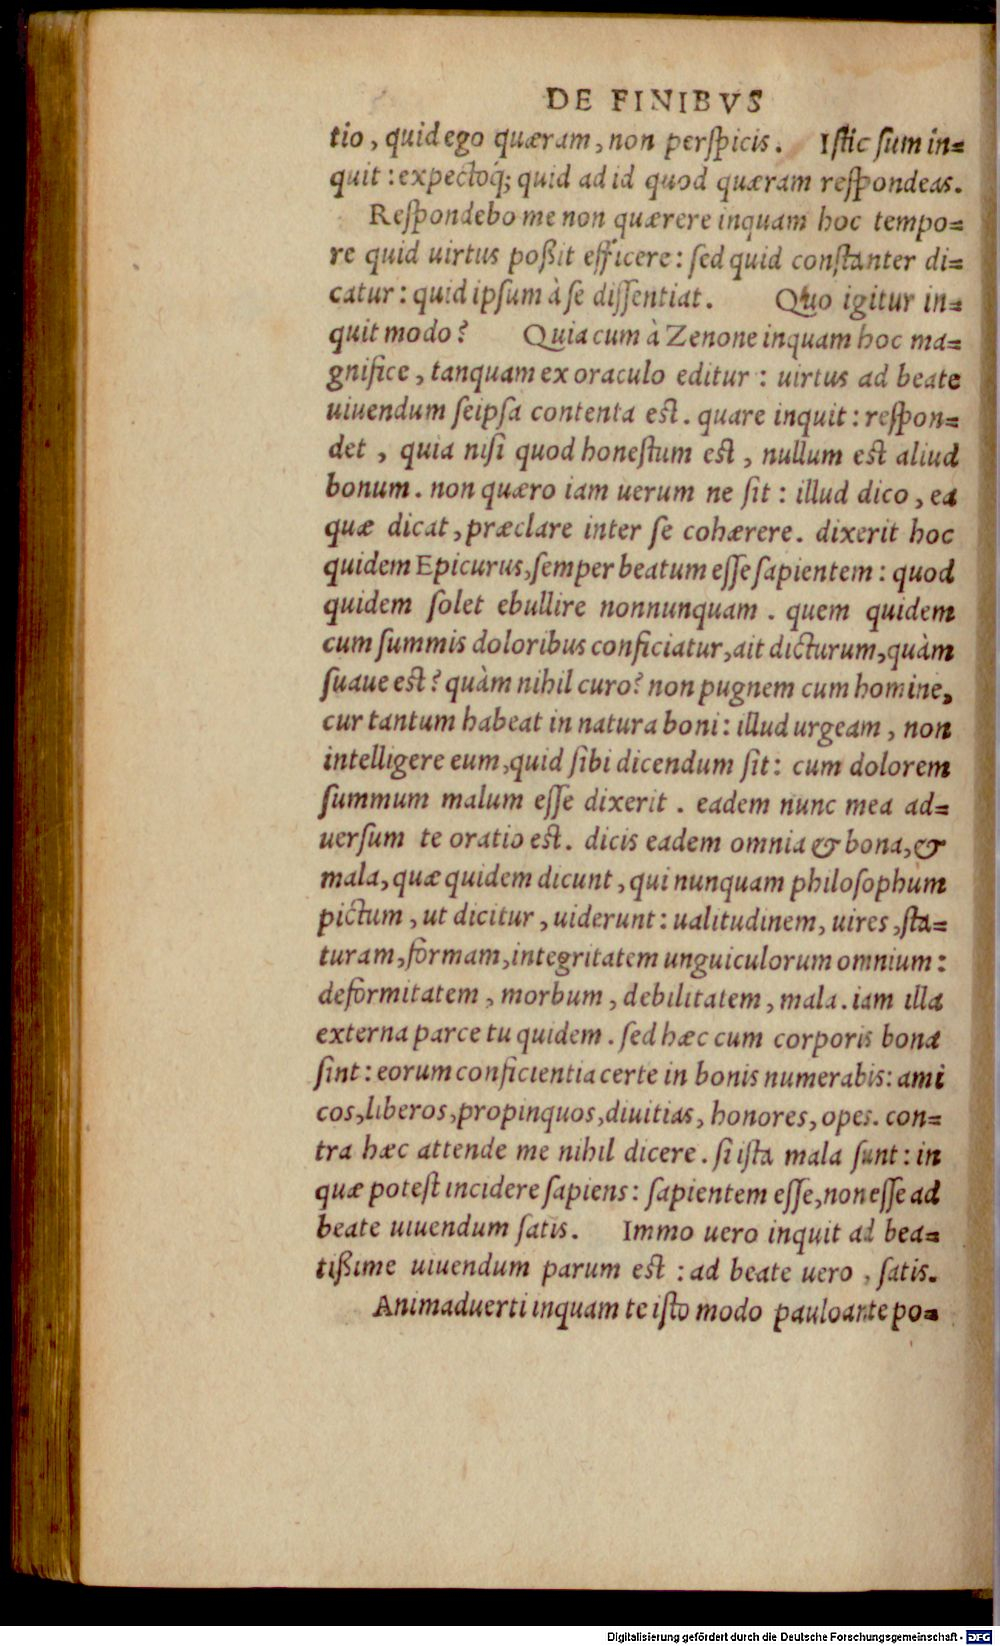 DE FINIBVS
tio, quid ego quæram, non perſpicis. Iſtic ſum in=
quit: expectoq́; quid ad id quod quæram reſpondeas.
Reſpondebo me non quærere inquam hoc tempo=
re quid uirtus poßit efficere: ſed quid conſtanter di=
catur: quid ipſum à ſe diſſentiat. Quo igitur in=
quit modo? Quia cum à Zenone inquam hoc ma=
gnifice, tanquam ex oraculo editur: uirtus ad beate
uiuendum ſeipſa contenta eſt. quare inquit: reſpon=
det, quia niſi quod honeſtum eſt, nullum eſt aliud
bonum. non quæro iam uerum ne ſit: illud dico, ea
quæ dicat, præclare inter ſe cohærere. dixerit hoc
quidem Epicurus, ſemper beatum eſſe ſapientem: quod
quidem ſolet ebullire nonnunquam. quem quidem
cum ſummis doloribus conficiatur, ait dicturum, quàm
ſuaue eſt? quàm nihil curo? non pugnem cum homine,
cur tantum habeat in natura boni: illud urgeam, non
intelligere eum, quid ſibi dicendum ſit: cum dolorem
ſummum malum eſſe dixerit. eadem nunc mea ad=
uerſum te oratio eſt. dicis eadem omnia & bona, &
mala, quæ quidem dicunt, qui nunquam philoſophum
pictum, ut dicitur, uiderunt: ualitudinem, uires, ſta=
turam, formam, integritatem unguiculorum omnium:
deformitatem, morbum, debilitatem, mala. iam illa
externa parce tu quidem. ſed hæc cum corporis bona
ſint: eorum conficientia certe in bonis numerabis: ami
cos, liberos, propinquos, diuitias, honores, opes. con=
tra hæc attende me nihil dicere. ſi iſta mala ſunt: in
quæ poteſt incidere ſapiens: ſapientem eſſe, non eſſe ad
beate uiuendum ſatis. Immo uero inquit ad bea=
tißime uiuendum parum eſt: ad beate uero, ſatis.
Animaduerti inquam te iſto modo paulo ante po=
Digitalisierung gefördert durch die Deutsche Forschungsgemeinschaft - DFG